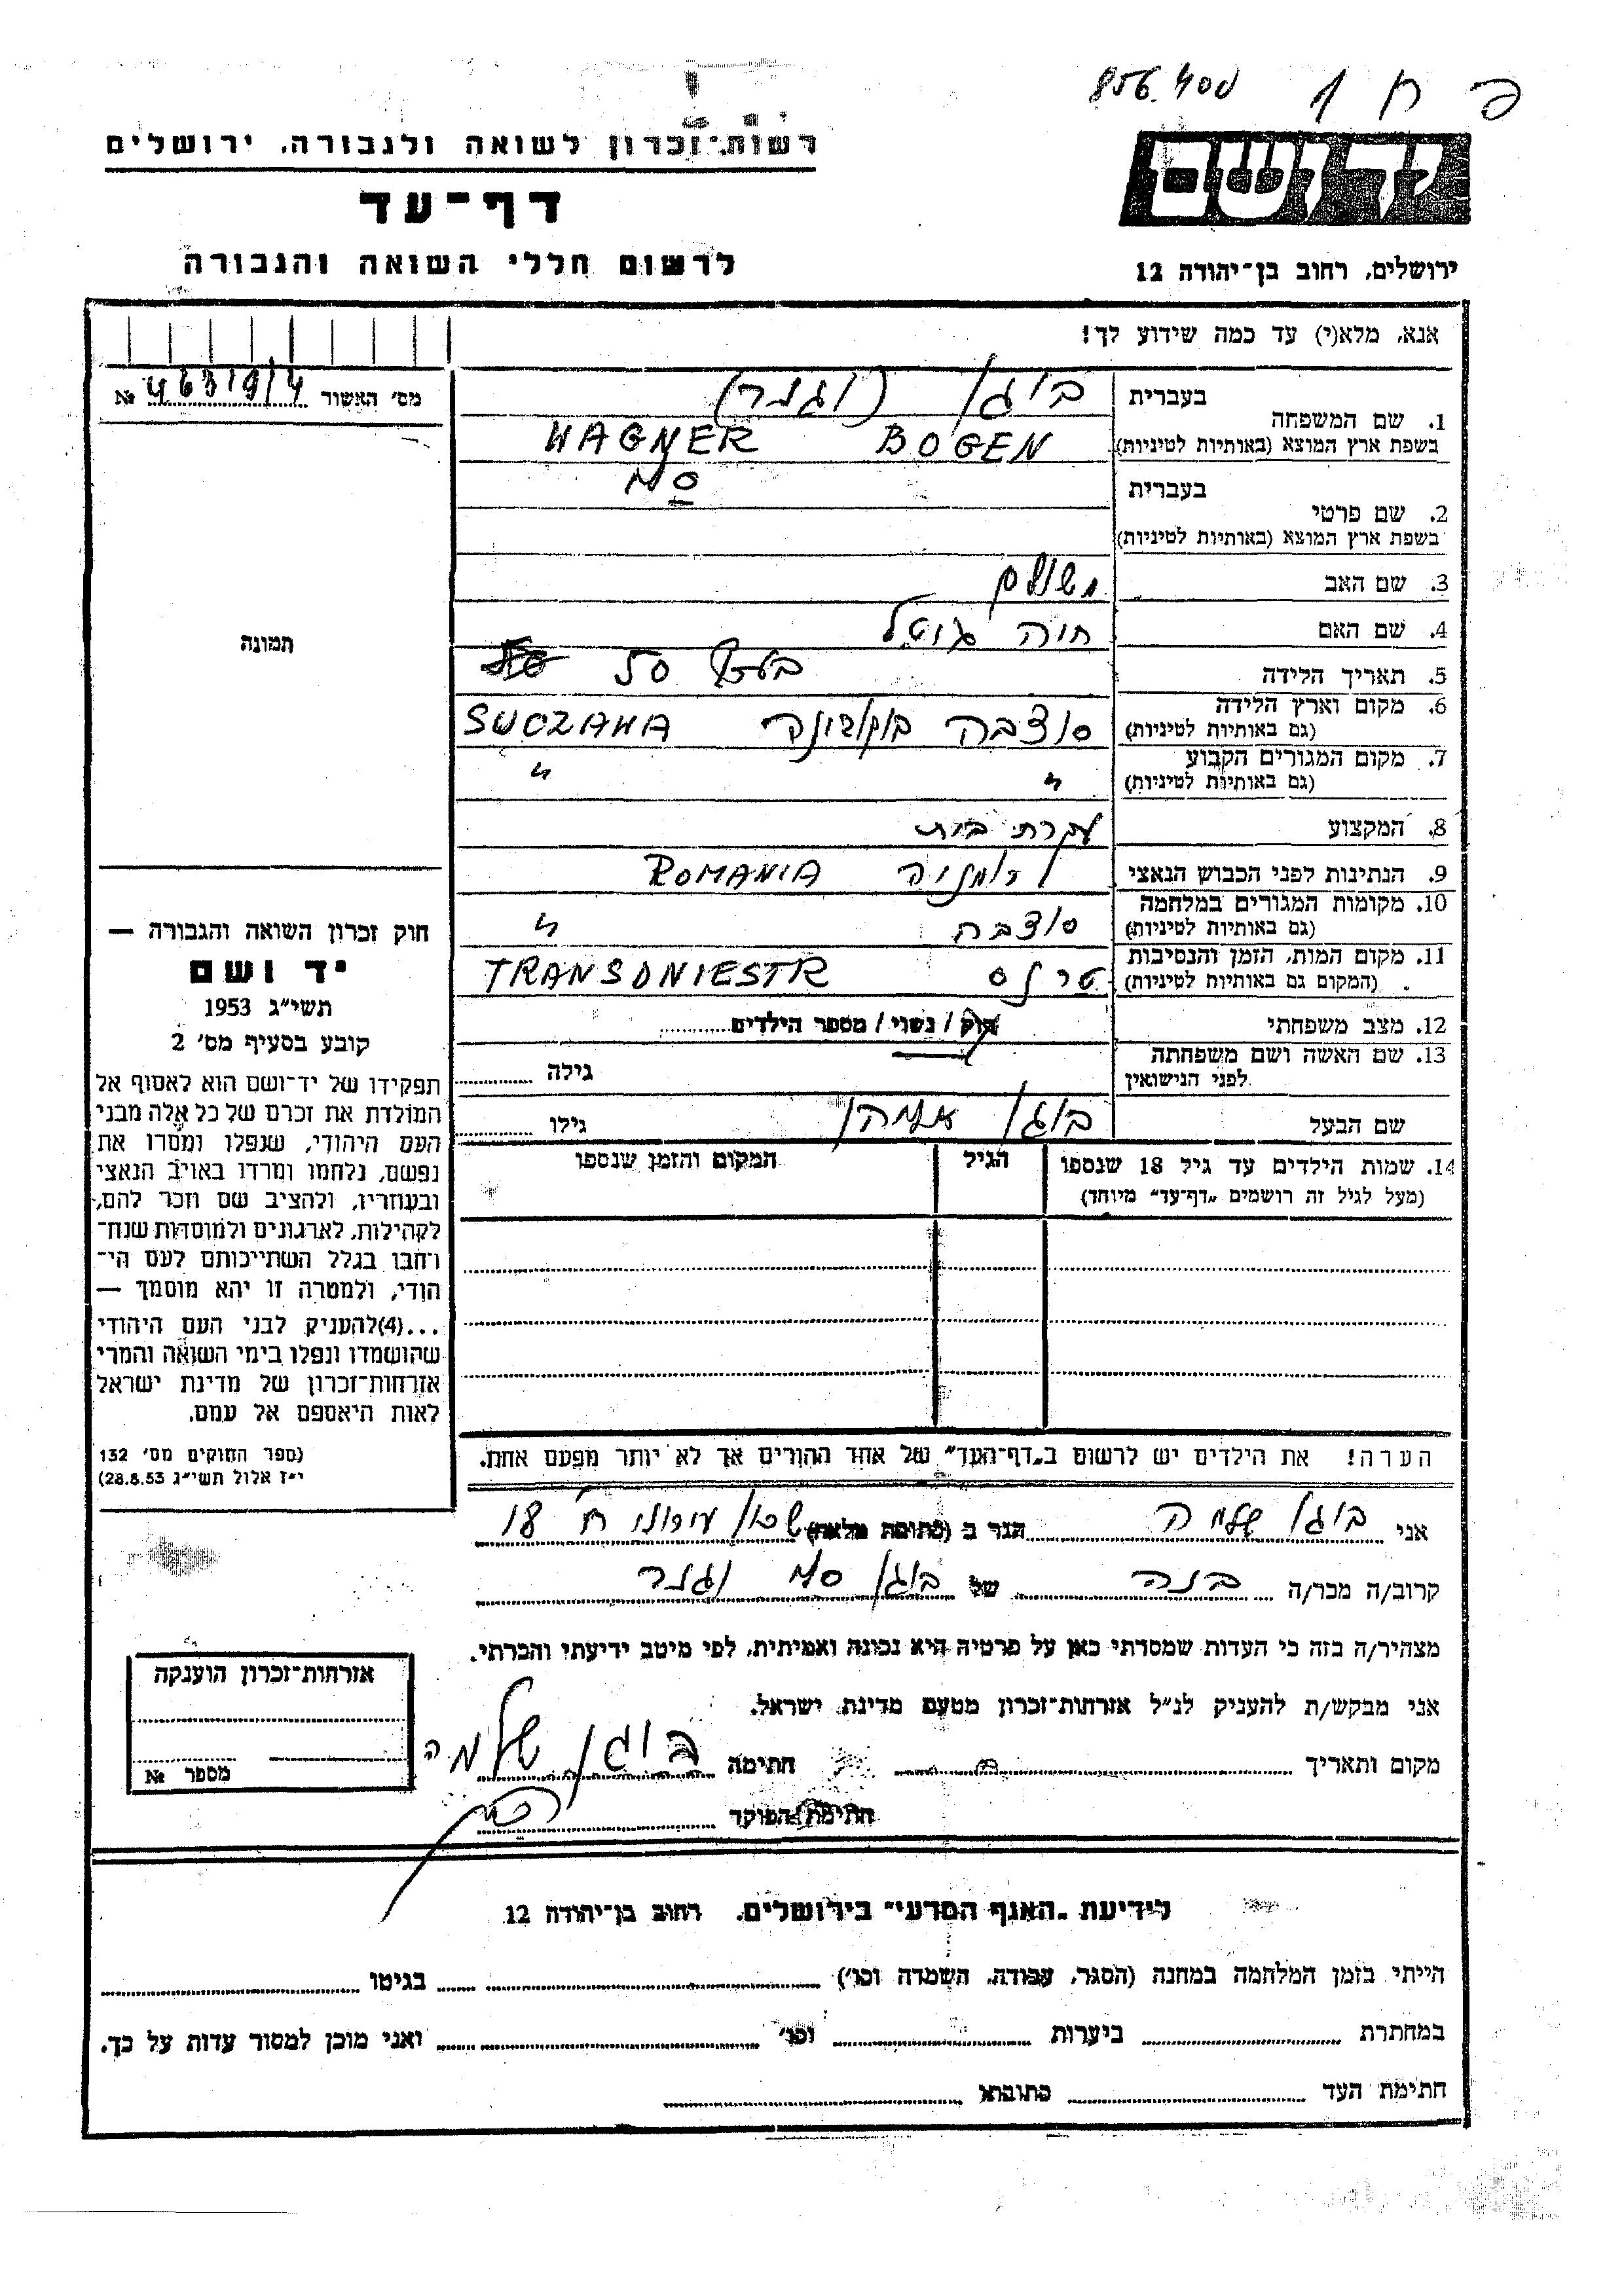 856.400 פ ח 1
יד ושם
רשות־זכרון לשואה ולגבורה, ירושלים
דף־עד
לרשום חללי השואה והגבורה
ירושלים, רחוב בן־יהודה 12
אנא, מלא(י) עד כמה שידוע לך!
מס' האשור № 46319/4
1. שם המשפחה
בעברית בוגן (וגנר)
בשפת ארץ המוצא (באותיות לטיניות) WAGNER BOGEN
2. שם פרטי
בעברית
בשפת ארץ המוצא (באותיות לטיניות)
3. שם האב משולם
4. שם האם חוה
5. תאריך הלידה 50
6. מקום וארץ הלידה סוצבה בוקובינה SUCZAWA
(גם באותיות לטיניות)
7. מקום המגורים הקבוע " "
(גם באותיות לטיניות)
8. המקצוע עקרת בית
9. הנתינות לפני הכבוש הנאצי רומניה ROMANIA
10. מקומות המגורים במלחמה סוצבה "
(גם באותיות לטיניות)
11. מקום המות, הזמן והנסיבות TRANSDNIESTR
(המקום גם באותיות לטיניות)
12. מצב משפחתי רוק / נשוי / מספר הילדים
13. שם האשה ושם משפחתה גילה
לפני הנישואין
שם הבעל בוגן גילו
14. שמות הילדים עד גיל 18 שנספו הגיל המקום והזמן שנספו
(מעל לגיל זה רושמים „דף־עד” מיוחד)
הערה! את הילדים יש לרשום ב„דף־העד” של אחד ההורים אך לא יותר מפעם אחת.
תמונה
חוק זכרון השואה והגבורה —
יד ושם
תשי״ג 1953
קובע בסעיף מס' 2
תפקידו של יד־ושם הוא לאסוף אל
המולדת את זכרם של כל אלה מבני
העם היהודי, שנפלו ומסרו את
נפשם, נלחמו ומרדו באויב הנאצי
ובעוזריו, ולהציב שם וזכר להם,
לקהילות, לארגונים ולמוסדות שנח־
רבו בגלל השתייכותם לעם הי־
הודי, ולמטרה זו יהא מוסמך —
...(4)להעניק לבני העם היהודי
שהושמדו ונפלו בימי השואה והמרי
אזרחות־זכרון של מדינת ישראל
לאות היאספם אל עמם.
(ספר החוקים מס' 132
י״ז אלול תשי״ג 28.8.53)
אני בוגן שלמה הגר ב (כתובת מלאה) שכון עירוני ח 18
קרוב/ה מכר/ה בנה של בוגן וגנר
מצהיר/ה בזה כי העדות שמסרתי כאן על פרטיה היא נכונה ואמיתית, לפי מיטב ידיעתי והכרתי.
אני מבקש/ת להעניק לנ״ל אזרחות־זכרון מטעם מדינת ישראל.
מקום ותאריך חתימה בוגן שלמה
חתימת הפוקד
אזרחות־זכרון הוענקה
מספר №
לידיעת „האגף המדעי” בירושלים, רחוב בן־יהודה 12
הייתי בזמן המלחמה במחנה (הסגר, עבודה, השמדה וכו') בגיטו
במחתרת ביערות וכו' ואני מוכן למסור עדות על כך.
חתימת העד כתובתו